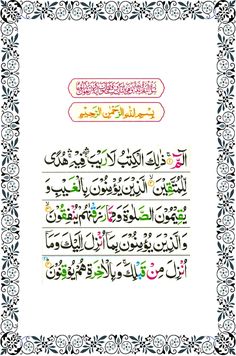 بِسْمِ اللهِ الرَّحْمٰنِ الرَّحِيْمِ
الٓمّٓ ذٰلِكَ الْكِتٰبُ لَا رَيْبَ ۛ فِيْهِ ۛ هُدًى
لِّلْمُتَّقِيْنَ الَّذِيْنَ يُؤْمِنُوْنَ بِالْغَيْبِ وَ
يُقِيْمُوْنَ الصَّلٰوةَ وَمِمَّا رَزَقْنٰهُمْ يُنْفِقُوْنَ
وَالَّذِيْنَ يُؤْمِنُوْنَ بِمَآ اُنْزِلَ اِلَيْكَ وَمَآ
اُنْزِلَ مِنْ قَبْلِكَ وَبِالْاٰخِرَةِ هُمْ يُوْقِنُوْنَ